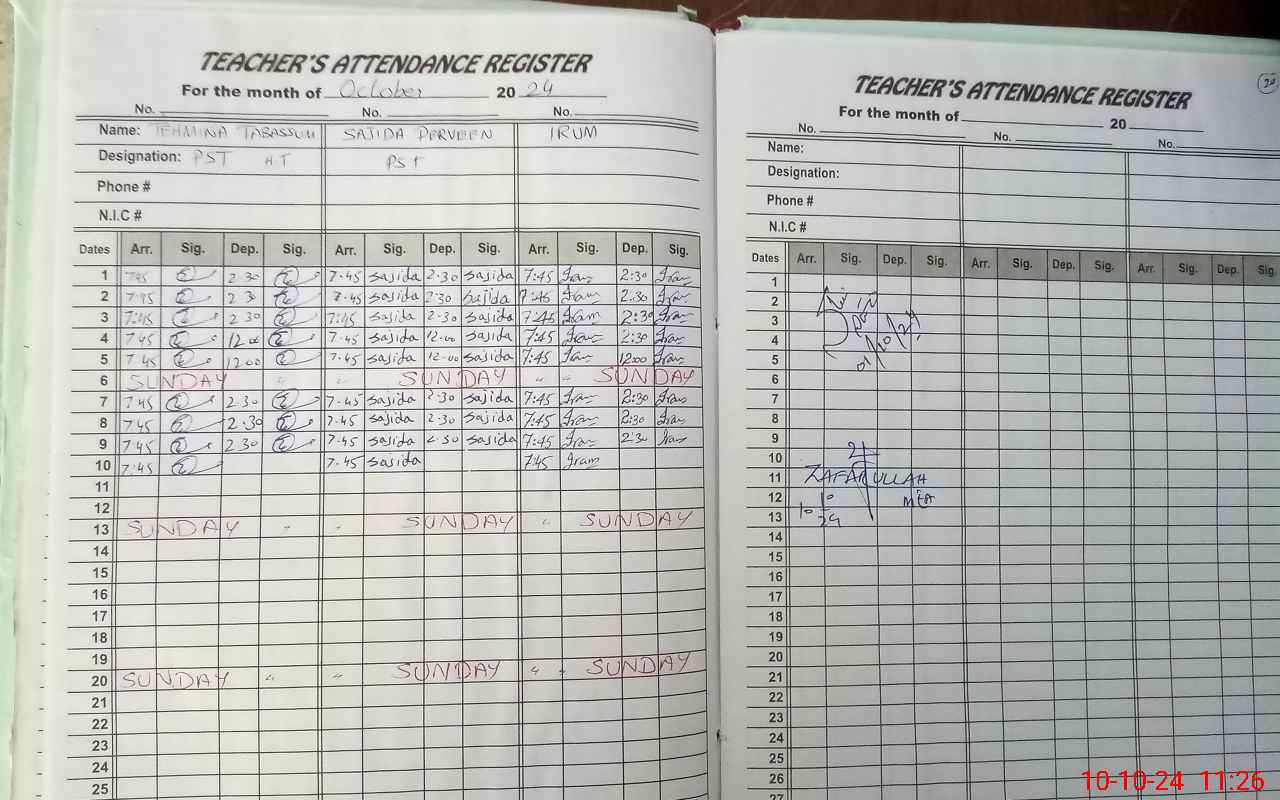 TEACHER'S ATTENDANCE REGISTER
For the month of October 2024
No. No. No.
Name: TEHMINA TABASSUM SAJIDA PERVEEN IRUM
Designation: PST HT PST
Phone #
N.I.C #
Dates Arr. Sig. Dep. Sig. Arr. Sig. Dep. Sig. Arr. Sig. Dep. Sig.
1 7:45 2.30 7.45 Sajida 2.30 Sajida 7:45 Iram 2:30 Iram
2 7:45 2.30 7.45 Sajida 2:30 Sajida 7:45 Iram 2:30 Iram
3 7:45 2.30 7:45 Sajida 2.30 Sajida 7:45 Iram 2:30 Iram
4 7.45 12.00 7.45 Sajida 12.00 Sajida 7:45 Iram 2:30 Iram
5 7.45 12.00 7.45 Sajida 12.00 Sajida 7:45 Iram 12:00 Iram
6 SUNDAY " " SUNDAY " " SUNDAY
7 7.45 2.30 7.45 Sajida 2.30 Sajida 7:45 Iram 2:30 Iram
8 7.45 2.30 7.45 Sajida 2.30 Sajida 7:45 Iram 2:30 Iram
9 7.45 2.30 7.45 Sajida 2.30 Sajida 7:45 Iram 2:30 Iram
10 7:45 7.45 Sajida 7:45 Iram
11
12
13 SUNDAY " " SUNDAY " SUNDAY
14
15
16
17
18
19
20 SUNDAY " " SUNDAY " " SUNDAY
21
22
23
24
25
20
TEACHER'S ATTENDANCE REGISTER
For the month of 20
No. No. No.
Name:
Designation:
Phone #
N.I.C #
Dates Arr. Sig. Dep. Sig. Arr. Sig. Dep. Sig. Arr. Sig. Dep. Sig.
1
2
3
4
5
6
7
8
9
10
11 ZAFARULLAH
12 10 MEA
13 10 24
14
15
16
17
18
19
20
21
22
23
24
25
26
27
10-10-24 11:26